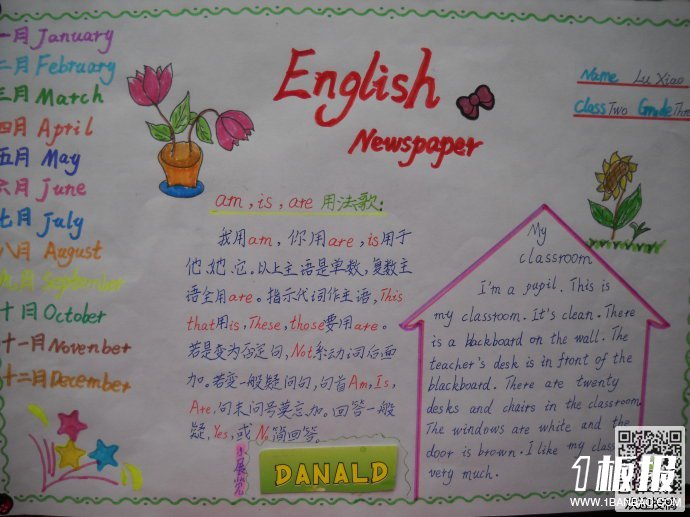 一月 January
二月 February
三月 March
四月 April
五月 May
六月 June
七月 July
八月 August
九月 September
十月 October
十一月 November
十二月 December
English
Newspaper
Name Lu Xiao
Class Two Grade Three
am, is, are 用法歌:
我用am, 你用are, is用于
他、她、它。以上主语是单数,复数主
语全用are。指示代词作主语, This
that用is, These, those要用are。
若是变为否定句, Not系动词后面
加。若变一般疑问句,句首Am, Is,
Are, 句末问号莫忘加。回答一般
疑, Yes, 或No简回答。
小展览
DANALD
My
classroom
I'm a pupil. This is
my classroom. It's clean. There
is a blackboard on the wall. The
teacher's desk is in front of the
blackboard. There are twenty
desks and chairs in the classroom.
The windows are white and the
door is brown. I like my class
very much.
1板报
WWW.1BANBAO.COM